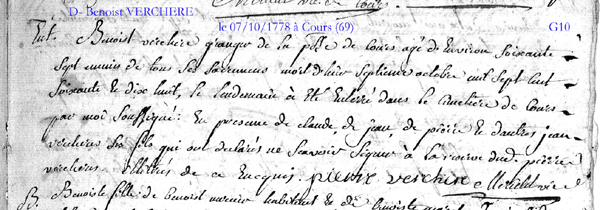 D- Benoist VERCHERE
le 07/10/1778 à Cours (69) G10
Benoist verchere granger de la psse de Cours agé d'environ soixante
sept munis de tous ses sacremens mort d'hier septieme octobre mil sept cent
soixante et dix huit, le lendemain à été enterré dans le cimetiere de Cours
par moi soussigné: En presence de claude, de jean de pierre & d'autres jean
verchere ses fils qui ont declarés ne scavoir signer à la reserve dud. pierre
verchere de ce Enequis. pierre verchere Merlat vic
Benoiste fille de benoist habitant & de benoiste